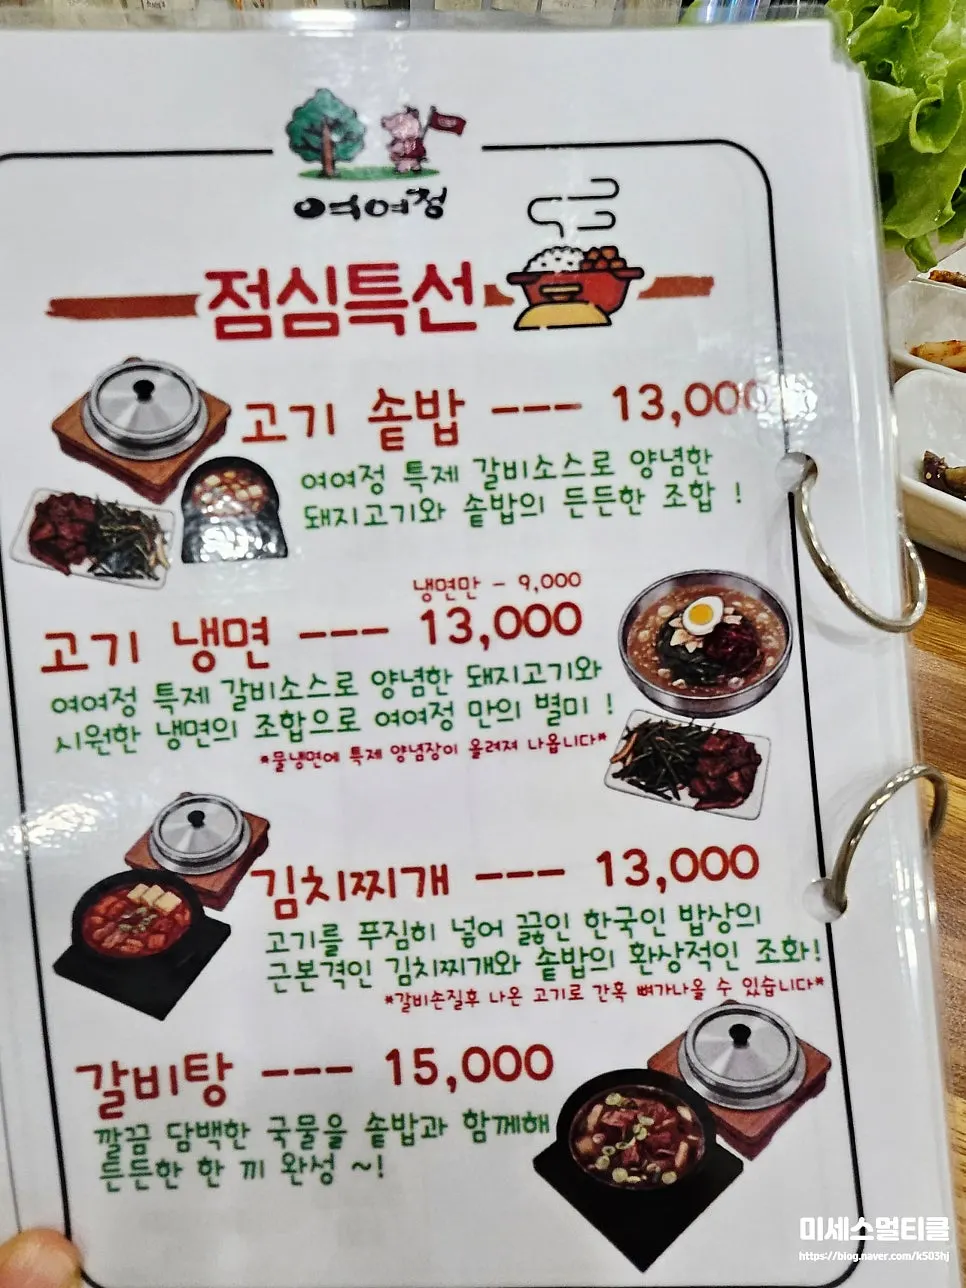 여여정
점심특선
고기 솥밥 --- 13,000
여여정 특제 갈비소스로 양념한
돼지고기와 솥밥의 든든한 조합 !
냉면만 - 9,000
고기 냉면 --- 13,000
여여정 특제 갈비소스로 양념한 돼지고기와
시원한 냉면의 조합으로 여여정 만의 별미 !
*물냉면에 특제 양념장이 올려져 나옵니다*
김치찌개 --- 13,000
고기를 푸짐히 넣어 끓인 한국인 밥상의
근본격인 김치찌개와 솥밥의 환상적인 조화!
*갈비손질후 나온 고기로 간혹 뼈가나올 수 있습니다*
갈비탕 --- 15,000
깔끔 담백한 국물을 솥밥과 함께해
든든한 한 끼 완성 ~!
미세스멀티클
https://blog.naver.com/k503hj